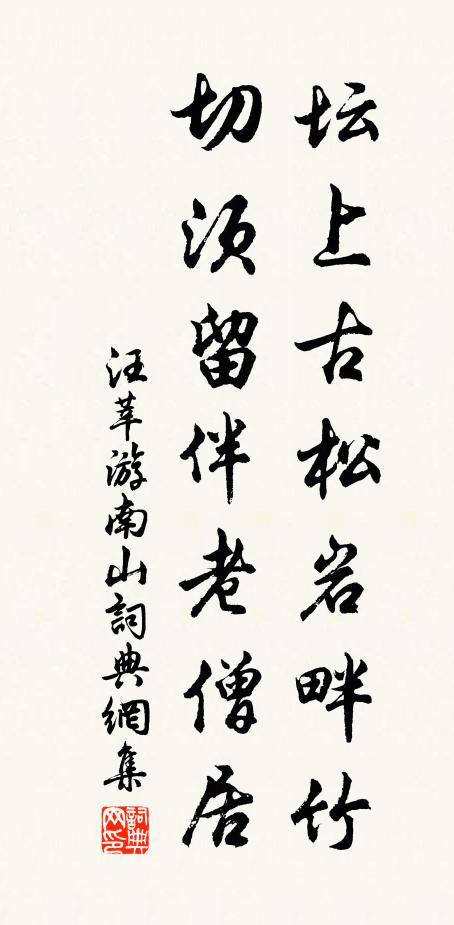 坛上古松岩畔竹
切须留伴老僧居
汪莘游南山詞典網集
詞典网印